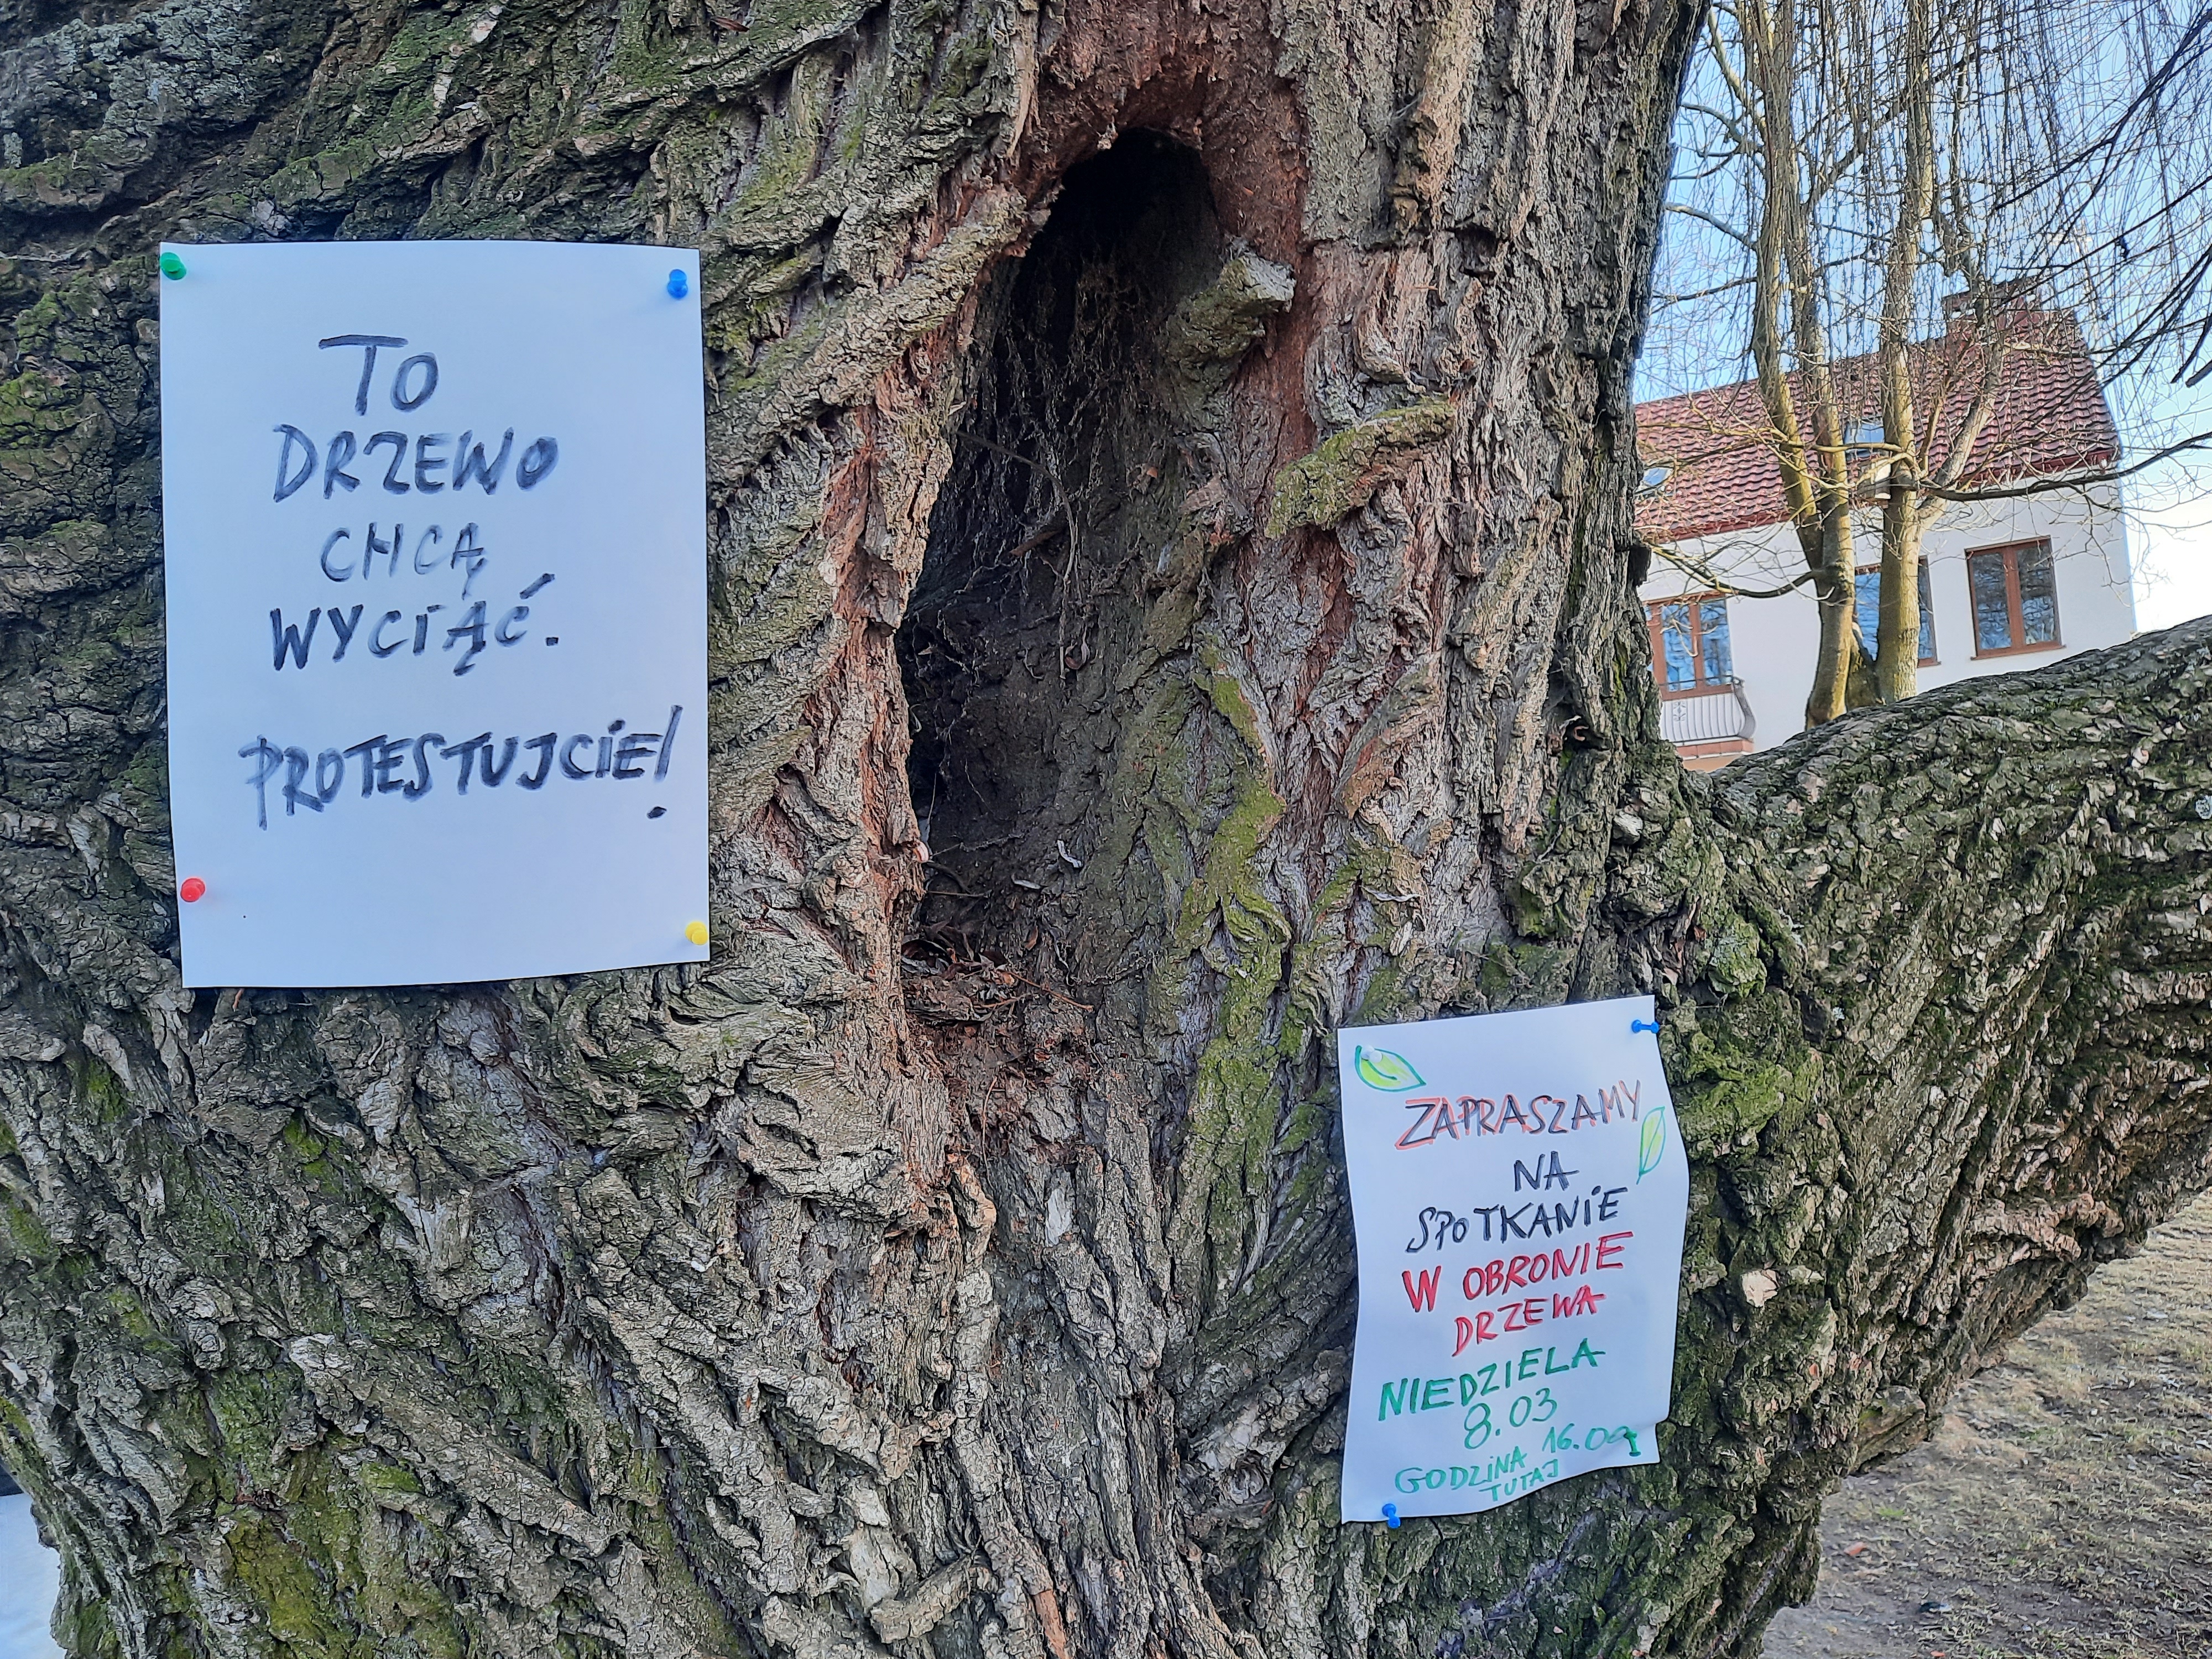 TO
DRZEWO
CHCĄ
WYCIĄĆ.
PROTESTUJCIE!
ZAPRASZAMY
NA
SPOTKANIE
W OBRONIE
DRZEWA
NIEDZIELA
8.03
GODZINA 16.00
TUTAJ